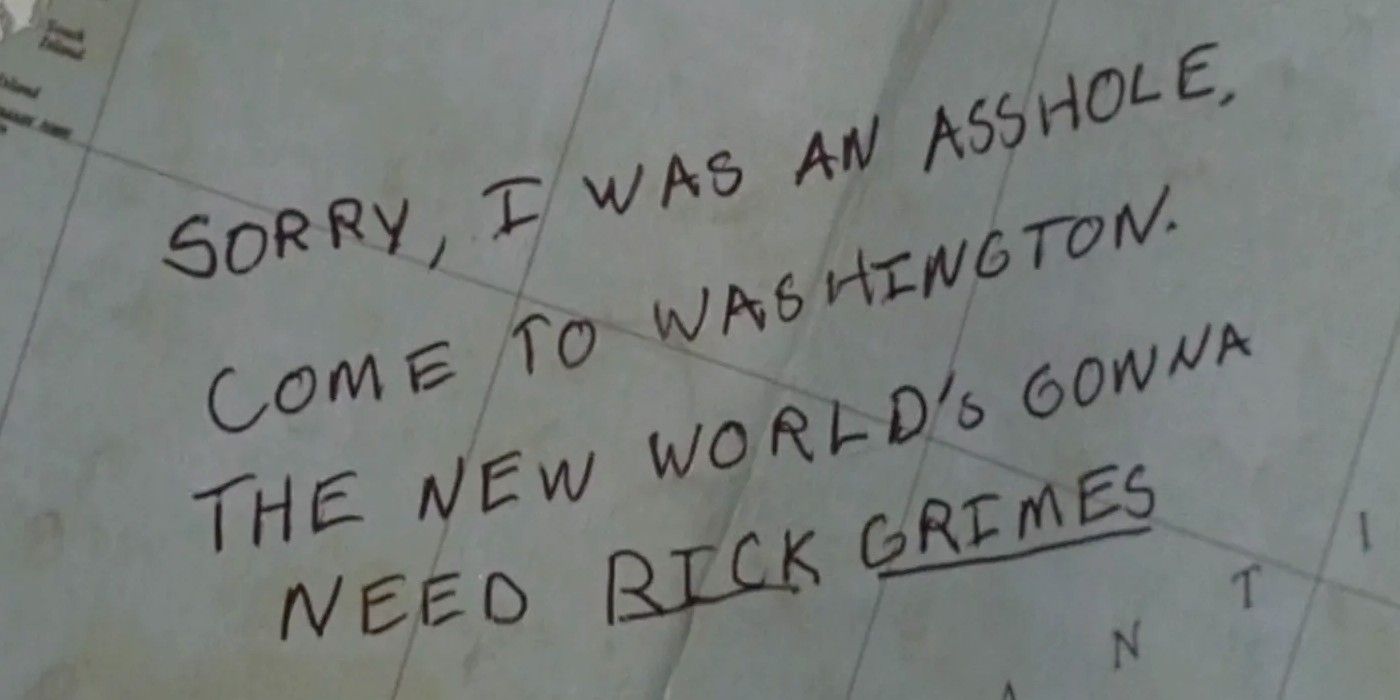 SORRY, I WAS AN ASSHOLE.
COME TO WASHINGTON.
THE NEW WORLD's GONNA
NEED RICK GRIMES
N T I